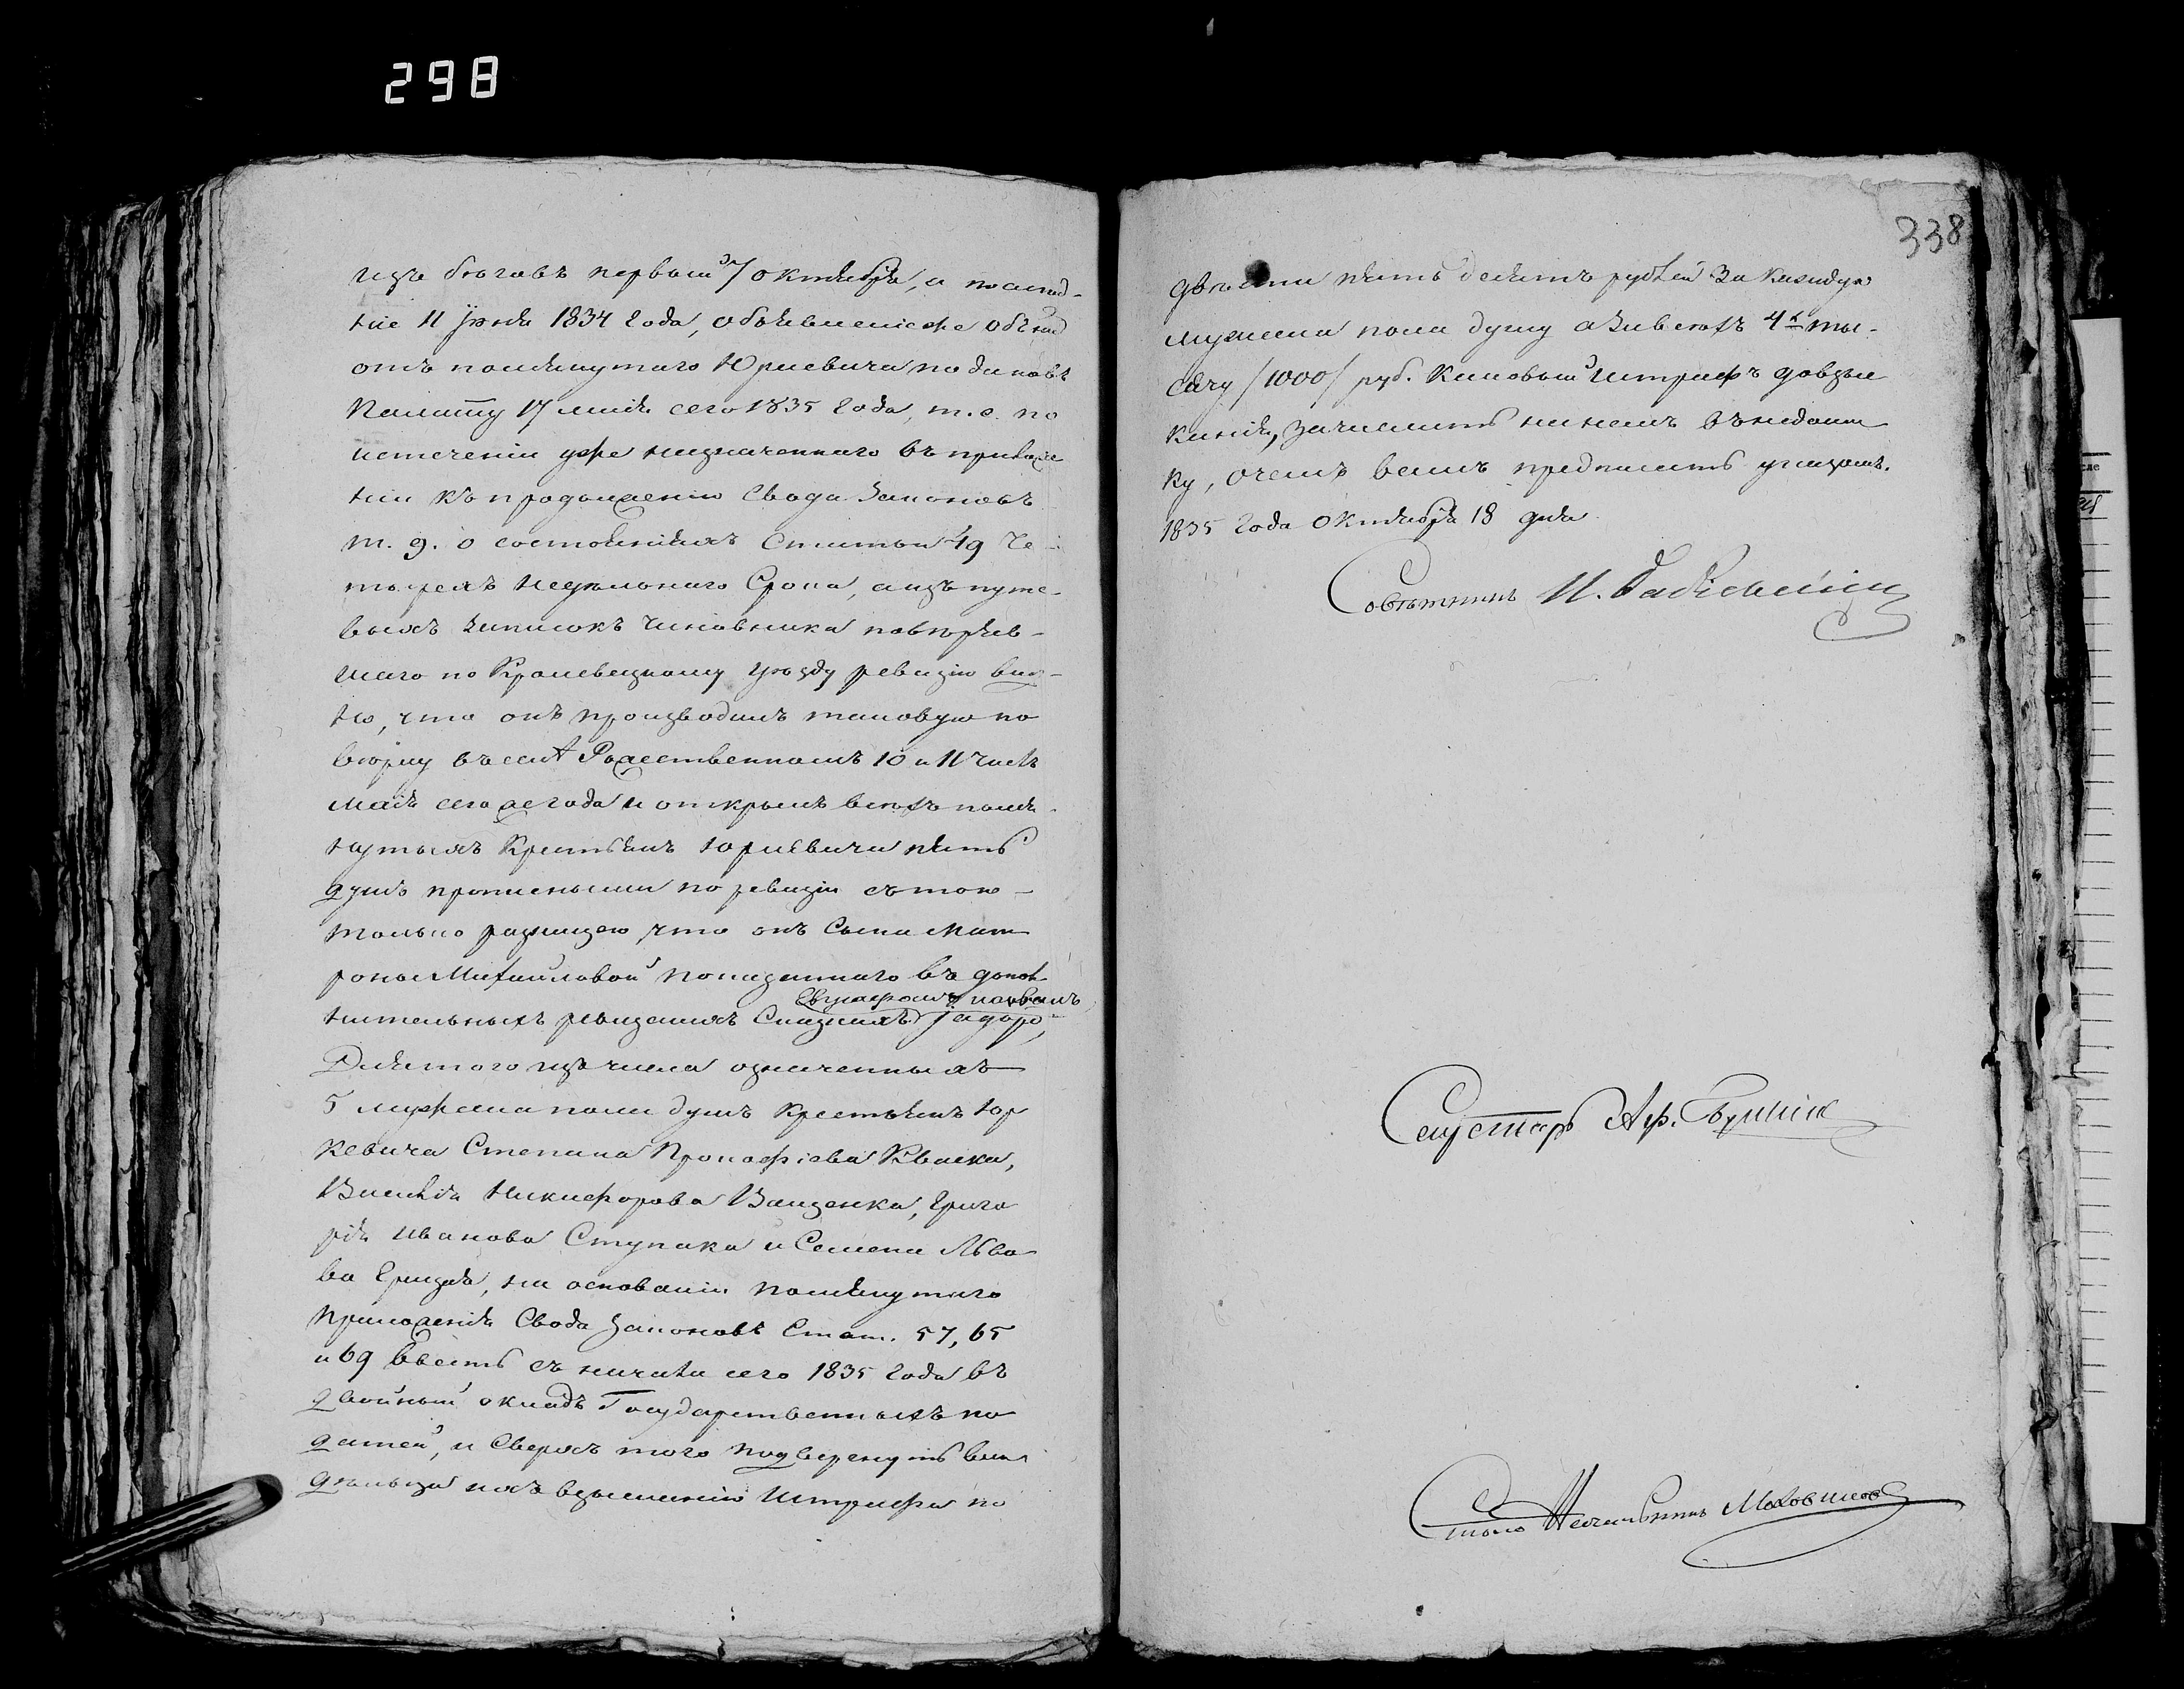 298
изъ бѣговъ первый 7 октября, а послѣд-
ніе 11 Іюня 1834 года, объявленіе же объ нихъ
отъ помянутаго Юркевича подано въ
Палату 17 мая сего 1835 года, т. е. по
истеченіи уже назначеннаго въ приложе
ніи къ продолженію Свода Законовъ
т. 9. о состояніяхъ Статьи 49 че-
тырехъ недѣльнаго Срока, а изъ путе-
выхъ записокъ чиновника повѣряв-
шаго по Кролевецкому уѣзду ревизію вид-
но, что онъ производилъ таковую по
вѣрку въ селѣ Рождественномъ 10 и 11 числъ
мая сего же года и открылъ всѣхъ помя-
нутыхъ крестьянъ Юркевича пять
душъ прописными по ревизіи съ тою
только разницею, что онъ сына Мат
роны Михайловой показаннаго въ допол-
Евграфомъ назвалъ
нительныхъ ревизскихъ Сказкахъ
изъ числа означенныхъ
5 мужеска пола душъ крестьянъ Юр
кевича Степана Прокофіева Кваска,
Василія Никифорова Ващенка, Григо
рія Иванова Ступака и Семена Льво
ва на основаніи помянутаго
приложенія Свода Законовъ Стат. 57, 65
и 69 ввесть съ начала сего 1835 года въ
двойный окладъ Государственныхъ по
датей, и сверхъ того подвергнуть вла
дѣльца ихъ взысканію Штрафа по
338
двѣсти пять десятъ рублей за каждую
мужеска пола душу а за всѣхъ 4хъ ты-
сячу /1000/ руб. каковый штрафъ до взы
канія, зачислить на немъ въ недоим
ку, о чемъ предписать указомъ.
1835 года октября 18 дня
Совѣтникъ И.
Секретарь Аф.
Столо Начальникъ